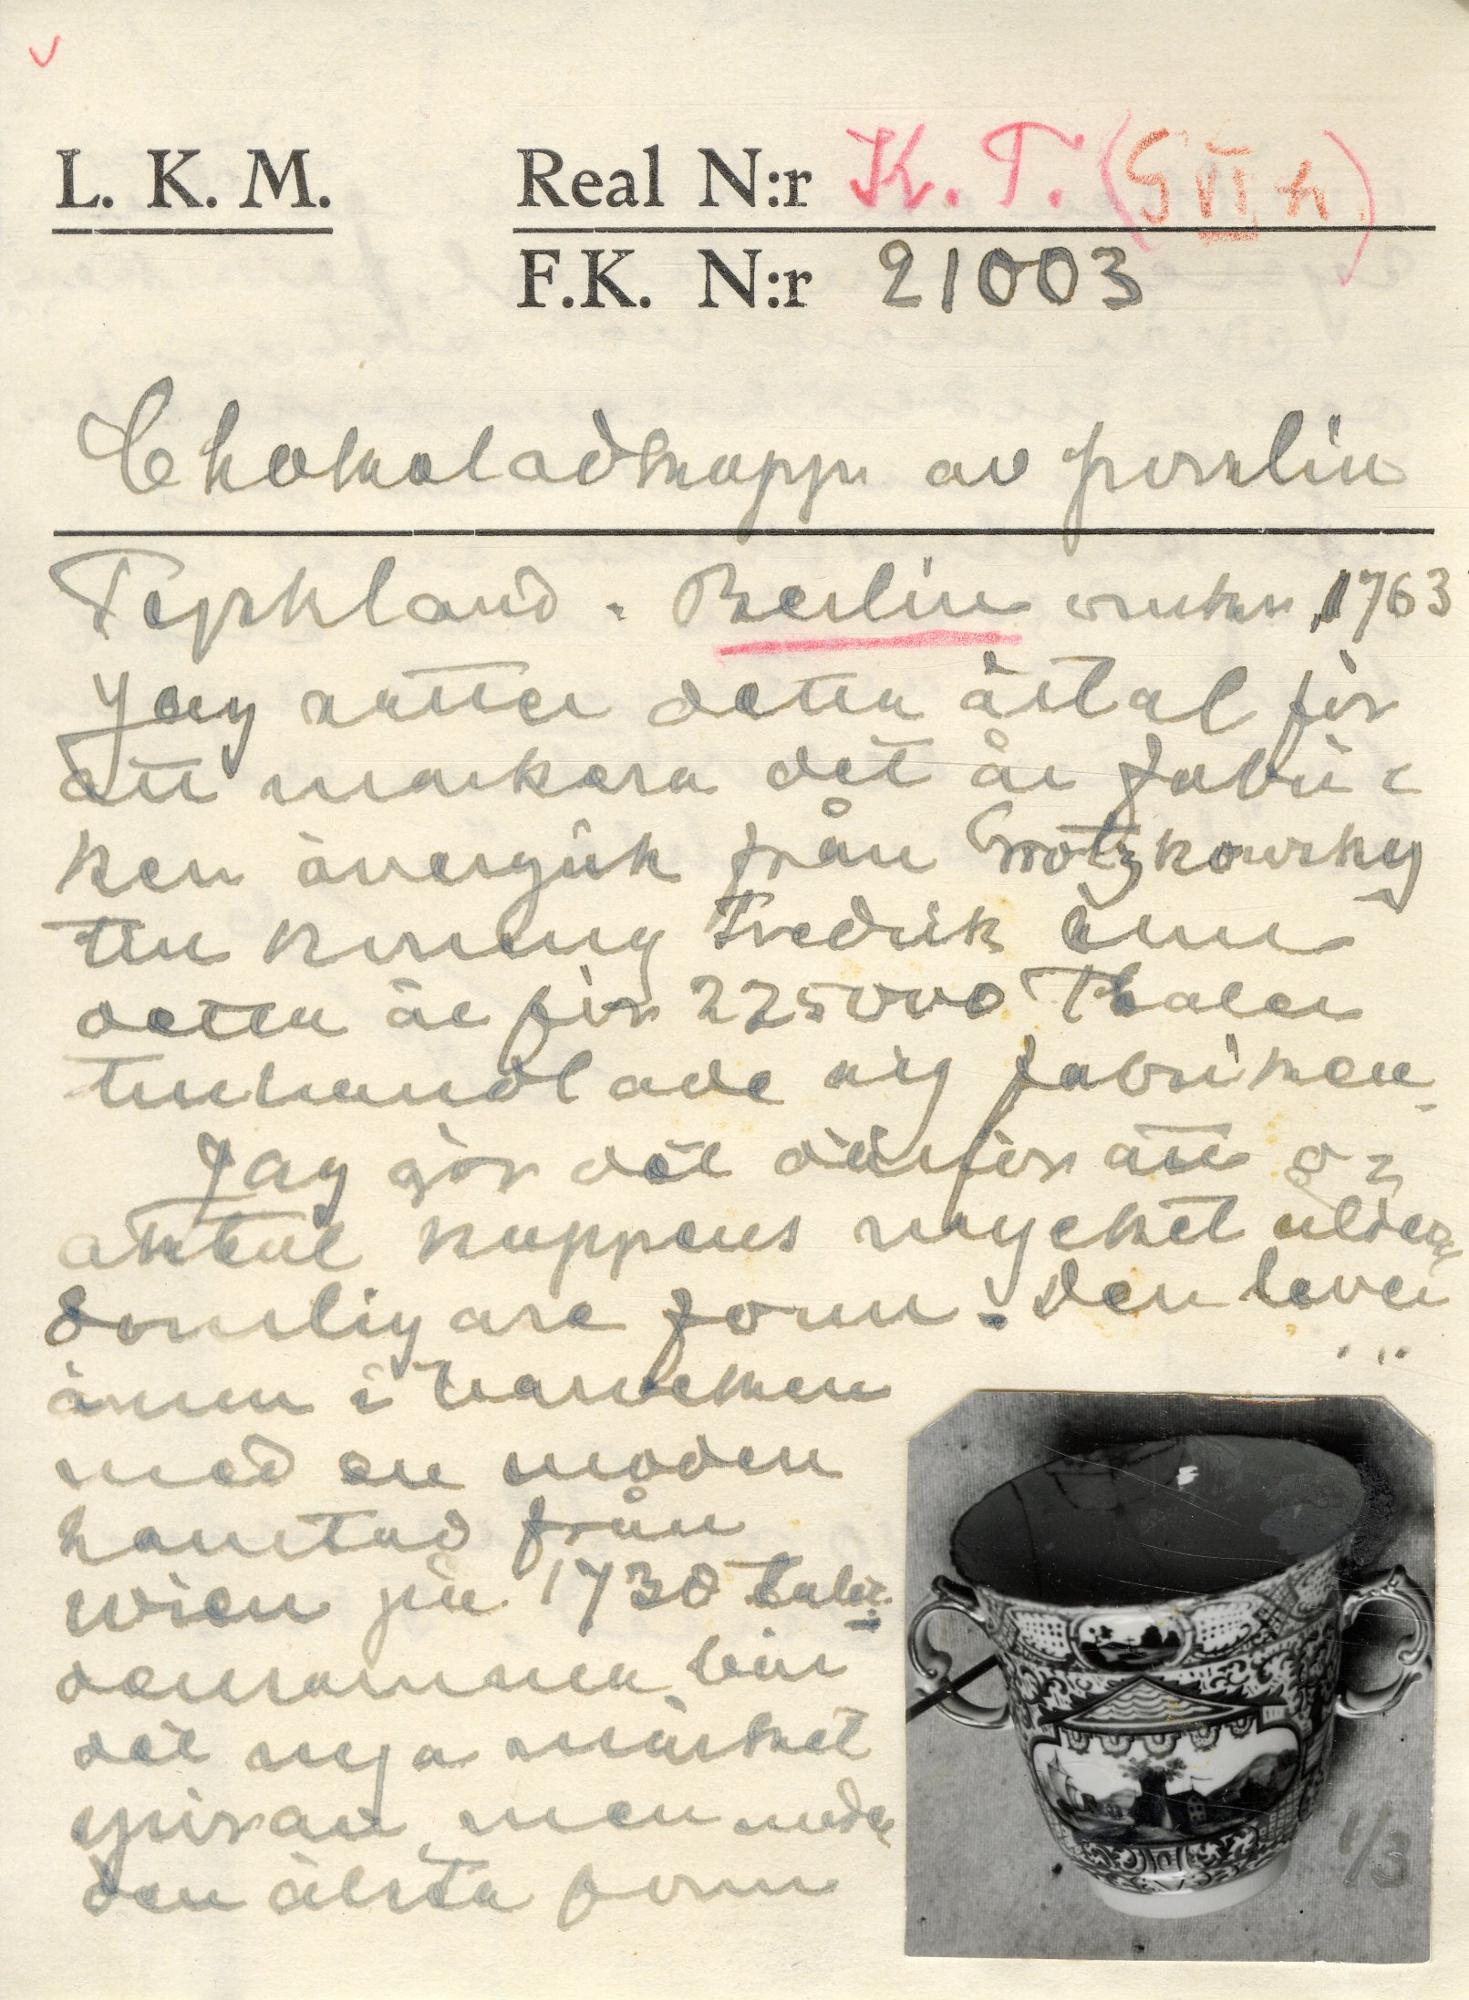 L. K. M.
Real N:r K. T. (G VI h.)
F.K. N:r 21003
Chokoladkopp av porslin
Tyskland. Berlin 1763
Jag sätter detta årtal för
att markera det år fabri-
ken övergick från Grotzkowsky
till konung Fredrik som
detta år för 225000 Thaler
tillhandlade sig fabriken.
Jag gör det därför att
koppens mycket ålder-
domligare form. Den lever
ännu i tanken
med en moden
hämtad från
Wien på 1730 talet.
densamma bär
det nya märket
spiran, men
den älsta form
1/3